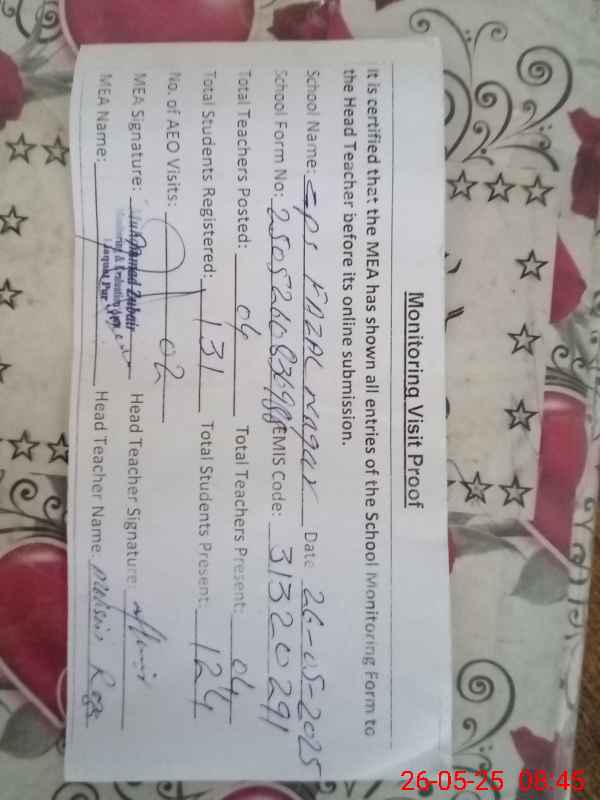 Monitoring Visit Proof
It is certified that the MEA has shown all entries of the School Monitoring Form to
the Head Teacher before its online submission.
School Name: GPS FAZAL Nagar Date 26-05-2025
School Form No: EMIS Code: 31320291
Total Teachers Posted: 04 Total Teachers Present: 04
Total Students Registered: 131 Total Students Present: 124
No. of AEO Visits: 02
MEA Signature: Head Teacher Signature:
Muhammad Zubair
Monitoring & Evaluation
MEA Name: Head Teacher Name:
26-05-25 08:45